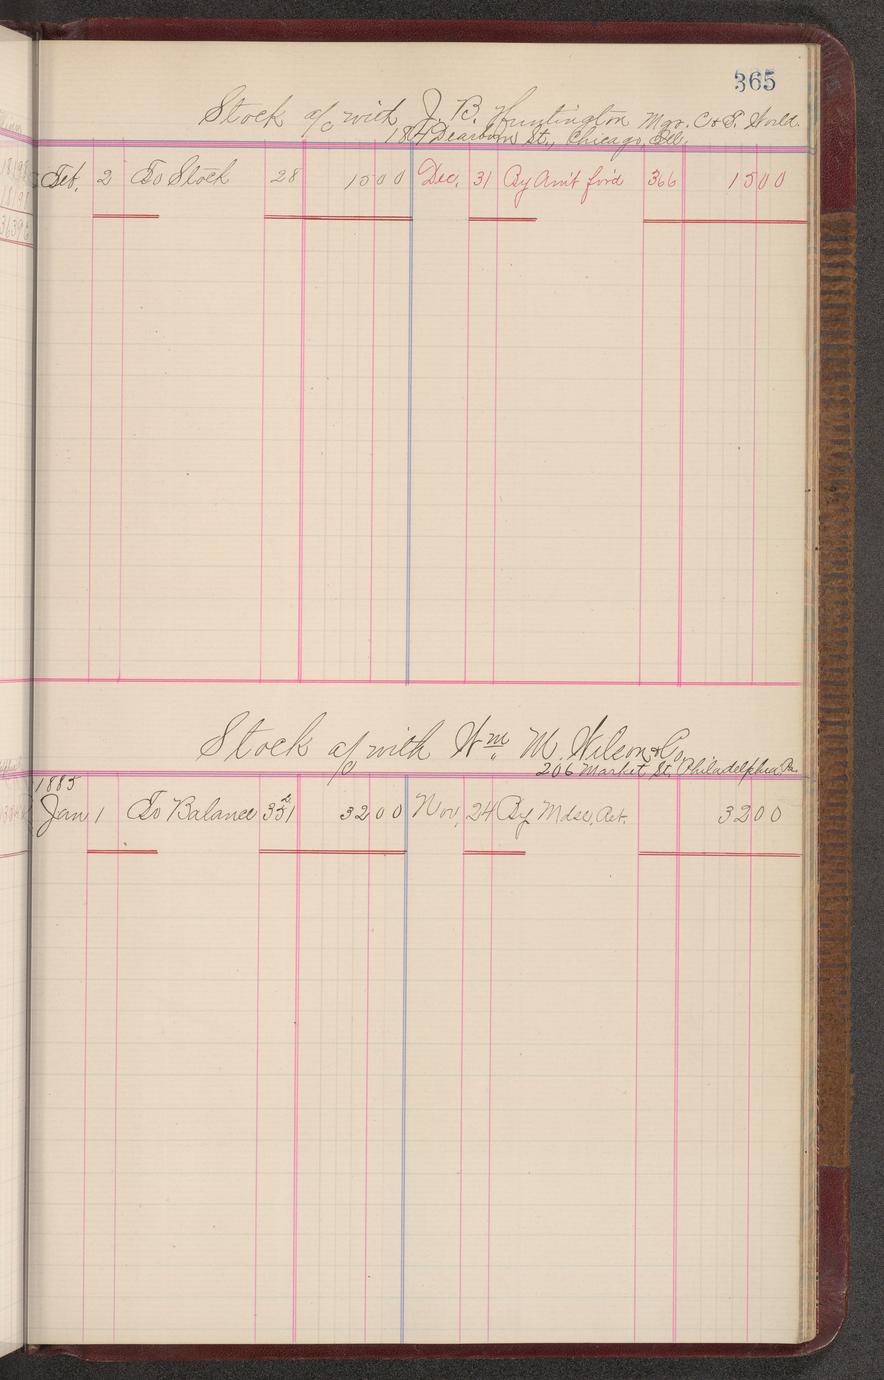 365
Stock a/c with J. B. Huntington Mgr. C & S. World.
184 Dearborn St., Chicago, Ill.
Feb. 2 To Stock 28 1500 Dec. 31 By Am't for'd 366 1500
Stock a/c with Wm M. Wilson & Co
206 Market St., Philadelphia Pa
1885
Jan 1 To Balance 331 3200 Nov. 24 By Mdse. Act. 3200